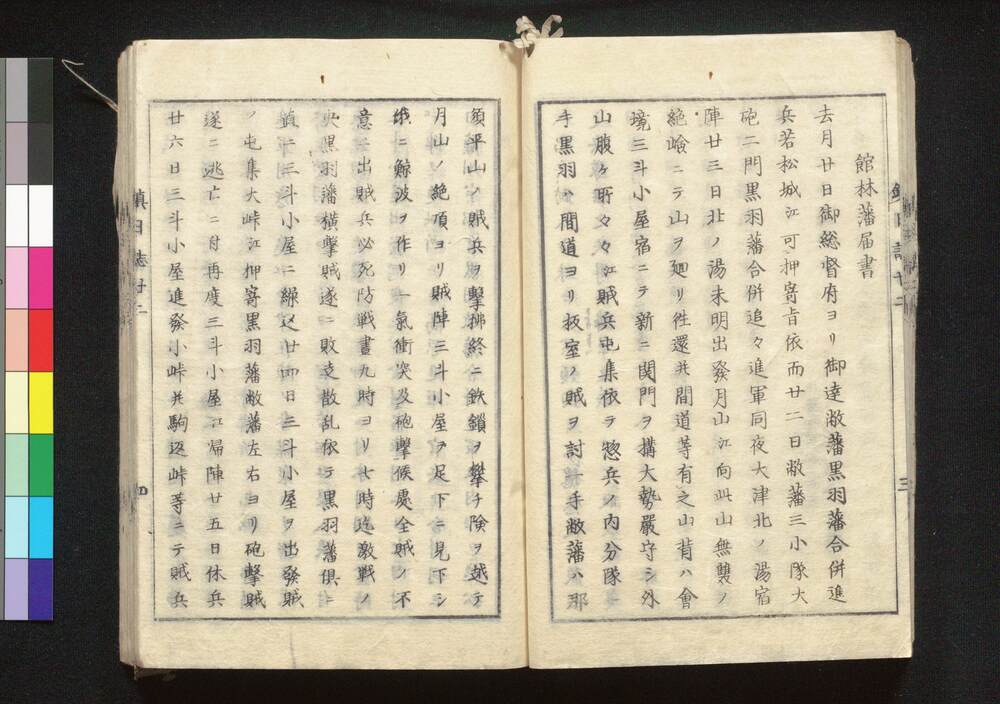 館林藩届書
去月廿日御総督府ヨリ御達敝藩黒羽藩合併進
兵若松城江可押寄旨依而廿二日敝藩三小隊大
砲二門黒羽藩合併追々進軍同夜大津北ノ湯宿
陣廿三日北ノ湯未明出發月山江向此山無雙ノ
絶嶮ニテ山ヲ廻リ徃還共間道等有之山背ハ會
境三斗小屋宿ニテ新ニ関門ヲ搆大勢嚴守シ外
山腹ケ所々々江賊兵屯集依テ惣兵ノ内分隊一
手黒羽ハ間道ヨリ板室ノ賊ヲ討一手敝藩ハ那
須平山ノ賊兵ヲ擊拂終ニ鉄鎖ヲ攀チ険ヲ越テ
月山ノ絶頂ヨリ賊陣三斗小屋ヲ足下ニ見下シ
俄ニ鯨波ヲ作リ一氣衝突及砲擊候處全賊ノ不
意ニ出賊兵必死防戦晝九時ヨリ七時迄激戦ノ
央黒羽藩横擊賊遂ニ敗走散乱依テ黒羽藩倶ニ
一三斗小屋ニ繰込廿四日三斗小屋ヲ出發賊
ノ屯集大峠江押寄黒羽藩敝藩左右ヨリ砲擊賊
遂ニ逃亡ニ付再度三斗小屋江帰陣廿五日休兵
廿六日三斗小屋進發小峠并駒返峠等ニテ賊兵
鎮日誌廿二
三
四